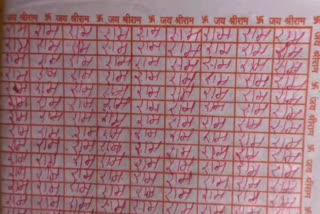 जय श्रीराम ॐ जय श्रीराम ॐ जय श्रीराम ॐ जय श्रीराम
राम राम राम राम राम राम राम राम राम
राम राम राम राम राम राम राम राम राम
राम राम राम राम राम राम राम राम राम
राम राम राम राम राम राम राम राम राम
राम राम राम राम राम राम राम राम राम
राम राम राम राम राम राम राम राम राम
राम राम राम राम राम राम राम राम राम
राम राम राम राम राम राम राम राम राम
राम राम राम राम राम राम राम राम राम
राम राम राम राम राम राम राम राम राम
राम राम राम राम राम राम राम राम राम
राम राम राम राम राम राम राम राम राम
जय श्रीराम ॐ जय श्रीराम ॐ जय श्रीराम